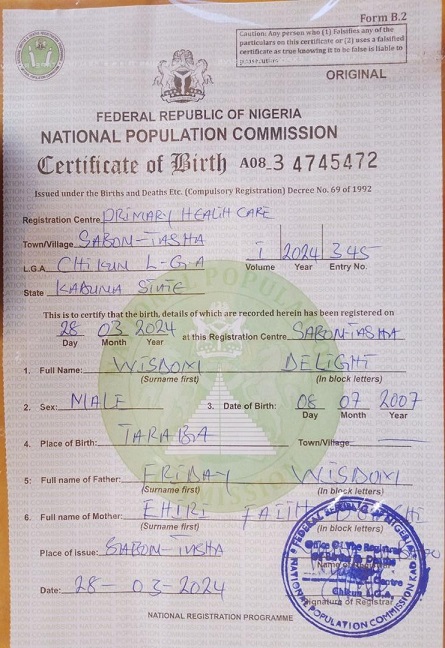 Form B.2
Caution: Any person who (1) Falsifies any of the
particulars on this certificate or (2) uses a falsified
certificate as true knowing it to be false is liable to
prosecution
ORIGINAL
FEDERAL REPUBLIC OF NIGERIA
NATIONAL POPULATION COMMISSION
Certificate of Birth A08_3 4745472
Issued under the Births and Deaths Etc. (Compulsory Registration) Decree No. 69 of 1992
Registration Centre PRIMARY HEALTH CARE
Town/Village SABON-TASHA
I 2024 345
L.G.A CHIKUN L-G-A
Volume Year Entry No.
State KADUNA STATE
This is to certify that the birth, details of which are recorded herein has been registered on
28 03 2024 at this Registration Centre SABON-TASHA
Day Month Year
1. Full Name: WISDOM DELIGHT
(Surname first) (In block letters)
2. Sex: MALE 3. Date of Birth: 08 07 2007
Day Month Year
4. Place of Birth: TARABA Town/Village:
5: Full name of Father: FRIDAY WISDOM
(Surname first) (In block letters)
6. Full name of Mother: EHIRI FAITH
(Surname first) (In block letters)
Place of issue: SABON-TASHA
Date: 28-03-2024
Name of Registrar
Signature of Registrar
FEDERAL REPUBLIC OF NIGERIA
Office Of The Registrar
Of Births & Deaths
Centre
Chikun L.G.A.
NATIONAL POPULATION COMMISSION KAD
NATIONAL REGISTRATION PROGRAMME